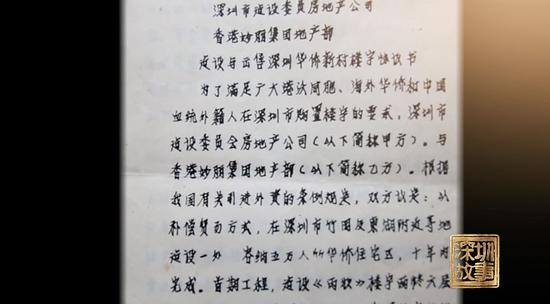 深圳市建设委员房地产公司
香港妙丽集团地产部
建设与出售深圳华侨新村楼宇协议书
为了满足广大港澳同胞、海外华侨和中国
血统外籍人在深圳市购置楼宇的要求，深圳市
建设委员会房地产公司（以下简称甲方）。与
香港妙丽集团地产部（以下简称乙方）。根据
我国有关引进外资的条例规定，双方议定：以
补偿贸易方式，在深圳市竹园及湖附近等地
建设一处 容纳五万人的华侨住宅区，十年内
完成。首期工程，建设楼宇两栋六层
深圳
故事